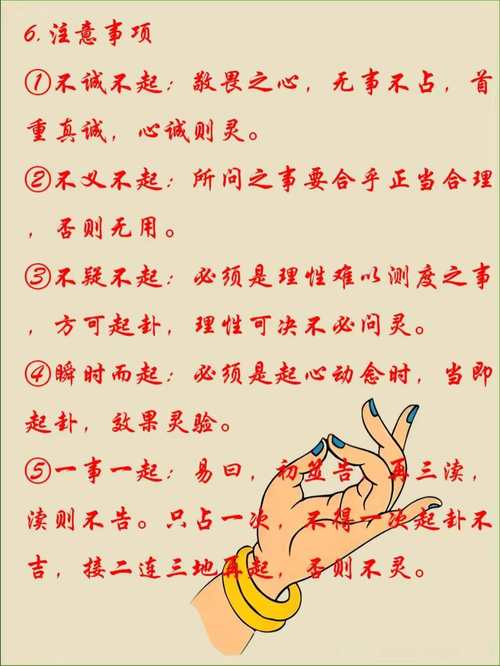 6.注意事项
①不诚不起：敬畏之心，无事不占，首
重真诚，心诚则灵。
②不义不起：所问之事要合乎正当合理
，否则无用。
③不疑不起：必须是理性难以测度之事
，方可起卦，理性可决不必问灵。
④瞬时而起：必须是起心动念时，当即
起卦，效果灵验。
⑤一事一起：易曰，初筮告，再三渎，
渎则不告。只占一次，不得一次起卦不
吉，接二连三地再起，否则不灵。